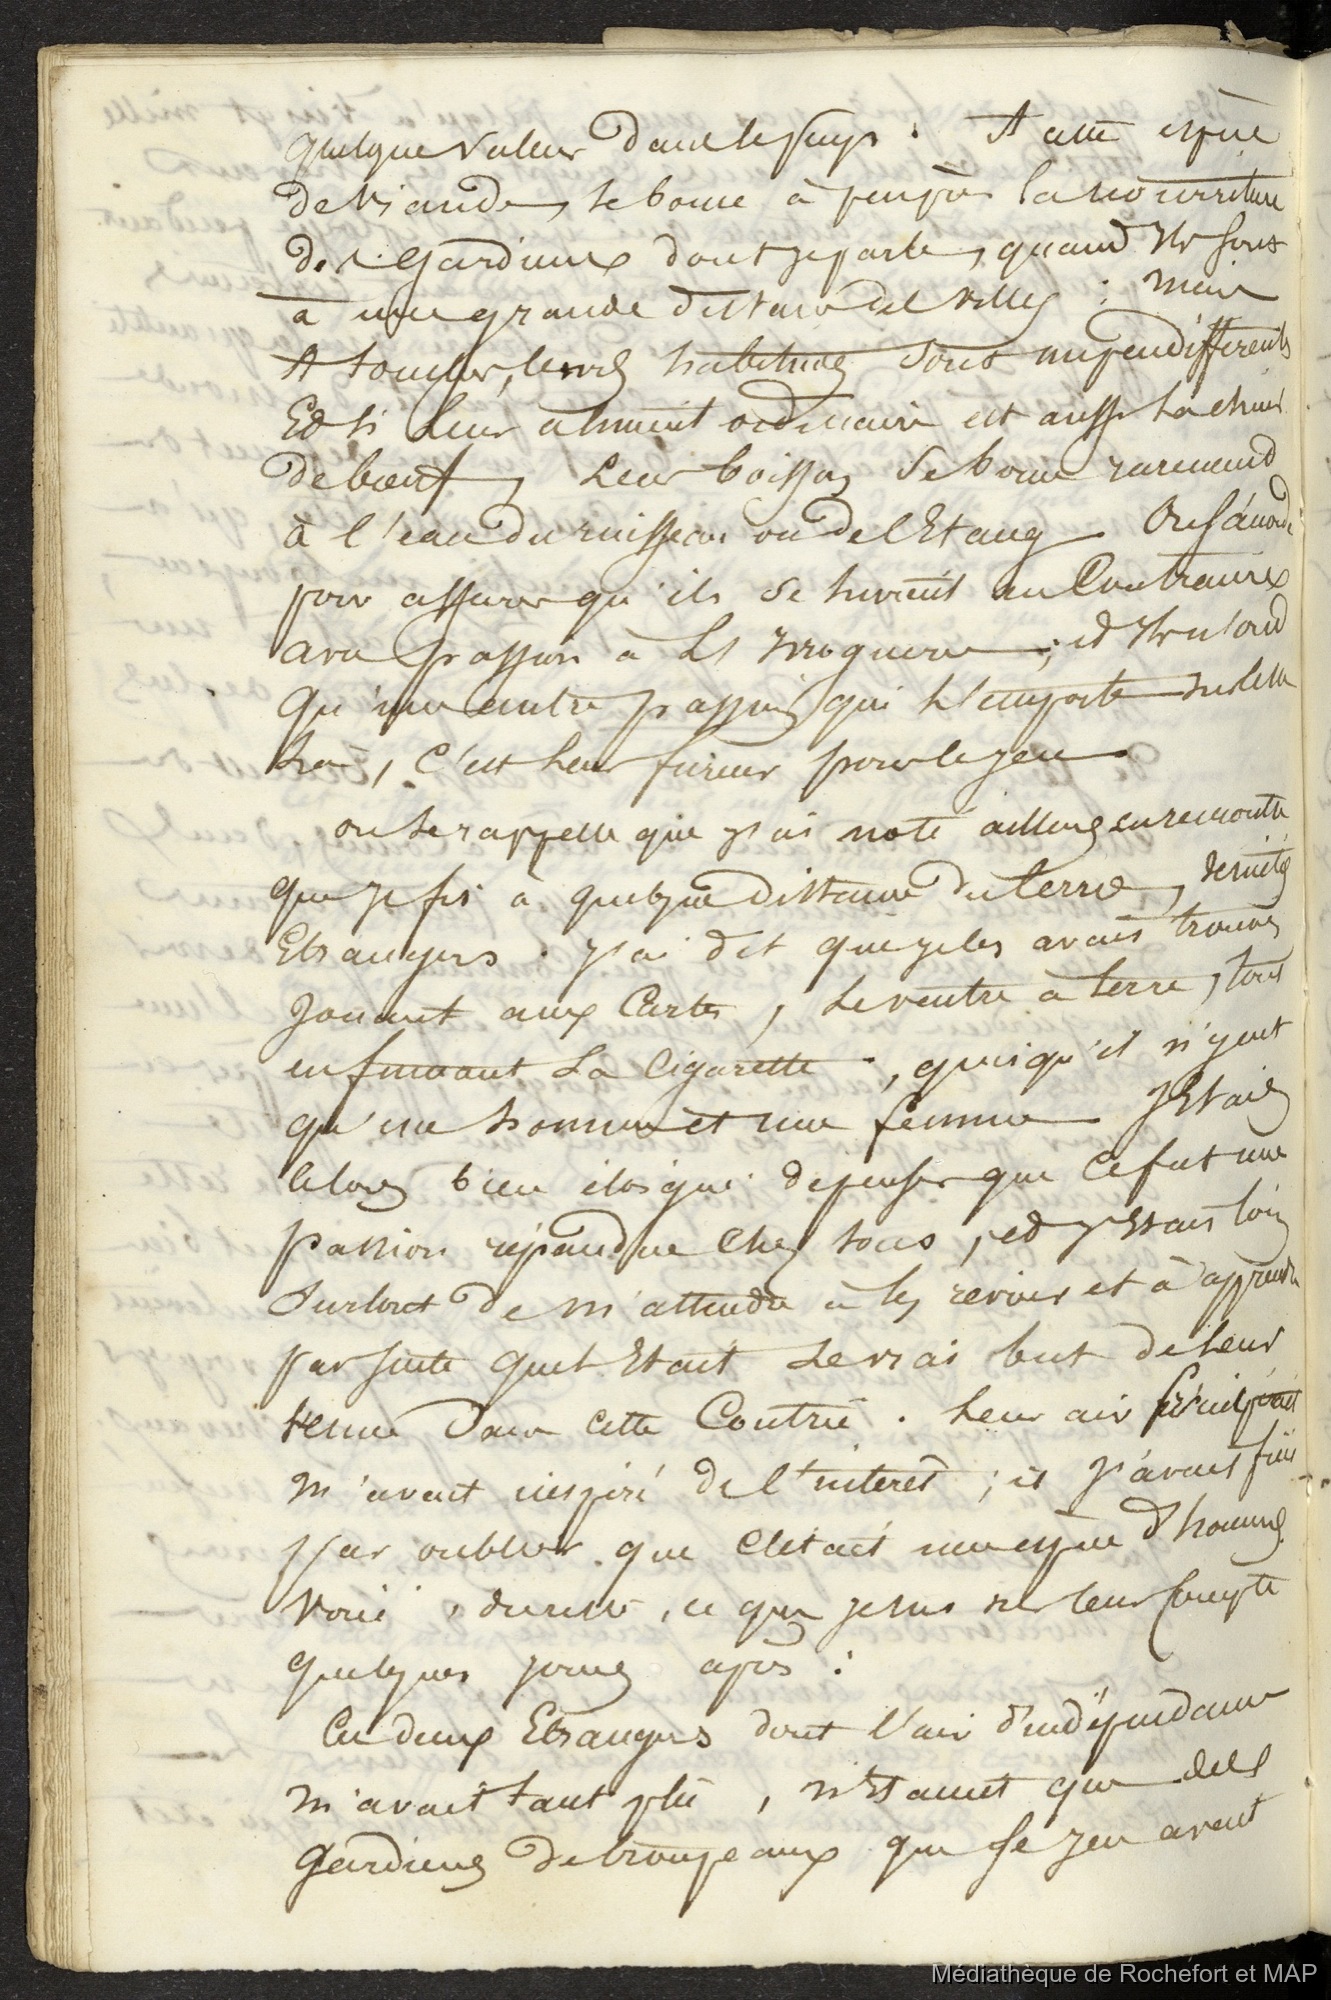 quelque valeur dans le pays. A cette espèce
de viande, se borne à peu près la nourriture
des gardiens dont je parle, quand ils sont
à une grande distance des villes : mais
leurs habitudes sont un peu différentes
Et si leur aliment ordinaire est aussi la chair
de bœuf, leur boisson se borne rarement
à l'eau du ruisseau ou de l'Etang. On s'accorde
pour assurer qu'ils se livrent au Contraire
avec passion à L' yvrognerie ; et ils n'ont
qu'une autre passion qui l'emporte sur celle
là, C'est leur fureur pour le jeu.
on se rappelle que j'ai noté ailleurs la rencontre
que je fis à quelque distance du terme, de mes
Etrangers. j'ai dit que je les avais trouvés
Jouant aux Cartes, le ventre à terre, tout
en fumant La Cigarette ; quoiqu'il n'y eut
qu'un homme et une femme J'Etais
alors bien éloigné de penser que ce fut une
passion répandue chez tous, et j'Etais loin
surtout de m'attendre à les revoir et à apprendre
par suite quel Etait le vrai but de leur
venue dans cette Contrée. Leur air
m'avait inspiré de l'intérêt ; et j'avais fini
par oublier que c'était une espèce d'hommes.
Voici, du reste, ce que je sus sur leur compte
quelques jours après :
Ces deux Etrangers dont l'air d'indépendance
m'avait tant plû, n'Etaient que des
gardiens de troupeaux que le jeu avait
Médiathèque de Rochefort et MAP